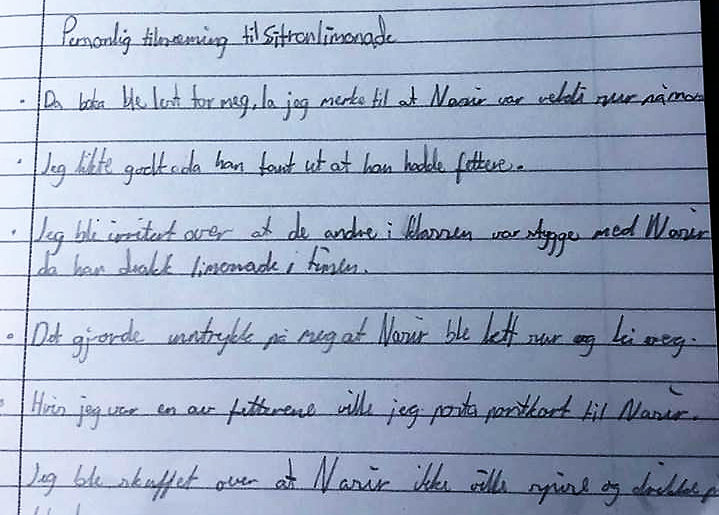 Personlig tilnærming til Sitronlimonade
• Da boka ble lest for meg, la jeg merke til at Nasir var veldi sur på
• Jeg likte godt da han fant ut at han hadde fettere.
• Jeg bli irritert over at de andre i klassen var stygge med Nasir
da han drakk limonade i timen.
• Det gjorde inntrykk på meg at Nasir ble lett sur og lei seg.
• Hvis jeg var en av fetterene ville jeg posta postkort til Nasir.
Jeg ble skuffet over at Nasir ikke ville spise og drikke